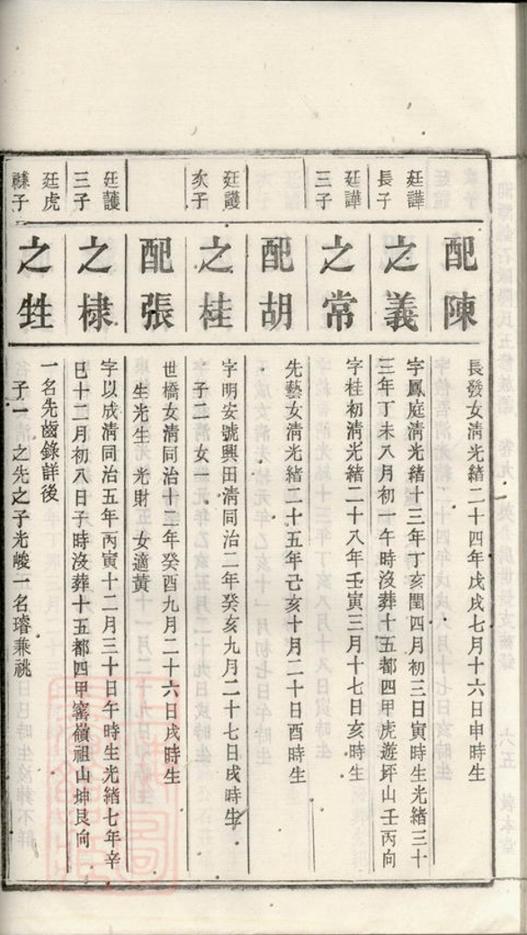 配陳
長發女淸光緖二十四年戊戌七月十六日申時生
廷譁
長子
之義
字鳳庭淸光緖十三年丁亥閏四月初三日寅時生光緖三十
三年丁未八月初一午時沒葬十五都四甲虎遊坪山壬丙向
廷譁
三子
之常
字桂初淸光緖二十八年壬寅三月十七日亥時生
配胡
先藝女淸光緖二十五年己亥十月二十日酉時生
廷護
次子
之桂
字明安號興田淸同治二年癸亥九月二十七日戌時生
子二 女一
配張
世橋女淸同治十二年癸酉九月二十六日戌時生
生光生 光財 女適黃
廷護
三子
之棣
字以成淸同治五年丙寅十二月三十日午時生光緖七年辛
巳十二月初八日子時沒葬十五都四甲窰嶺祖山坤艮向
廷虎
之甡
一名先鹵錄詳後
子一 之先之子光峻一名璿兼祧